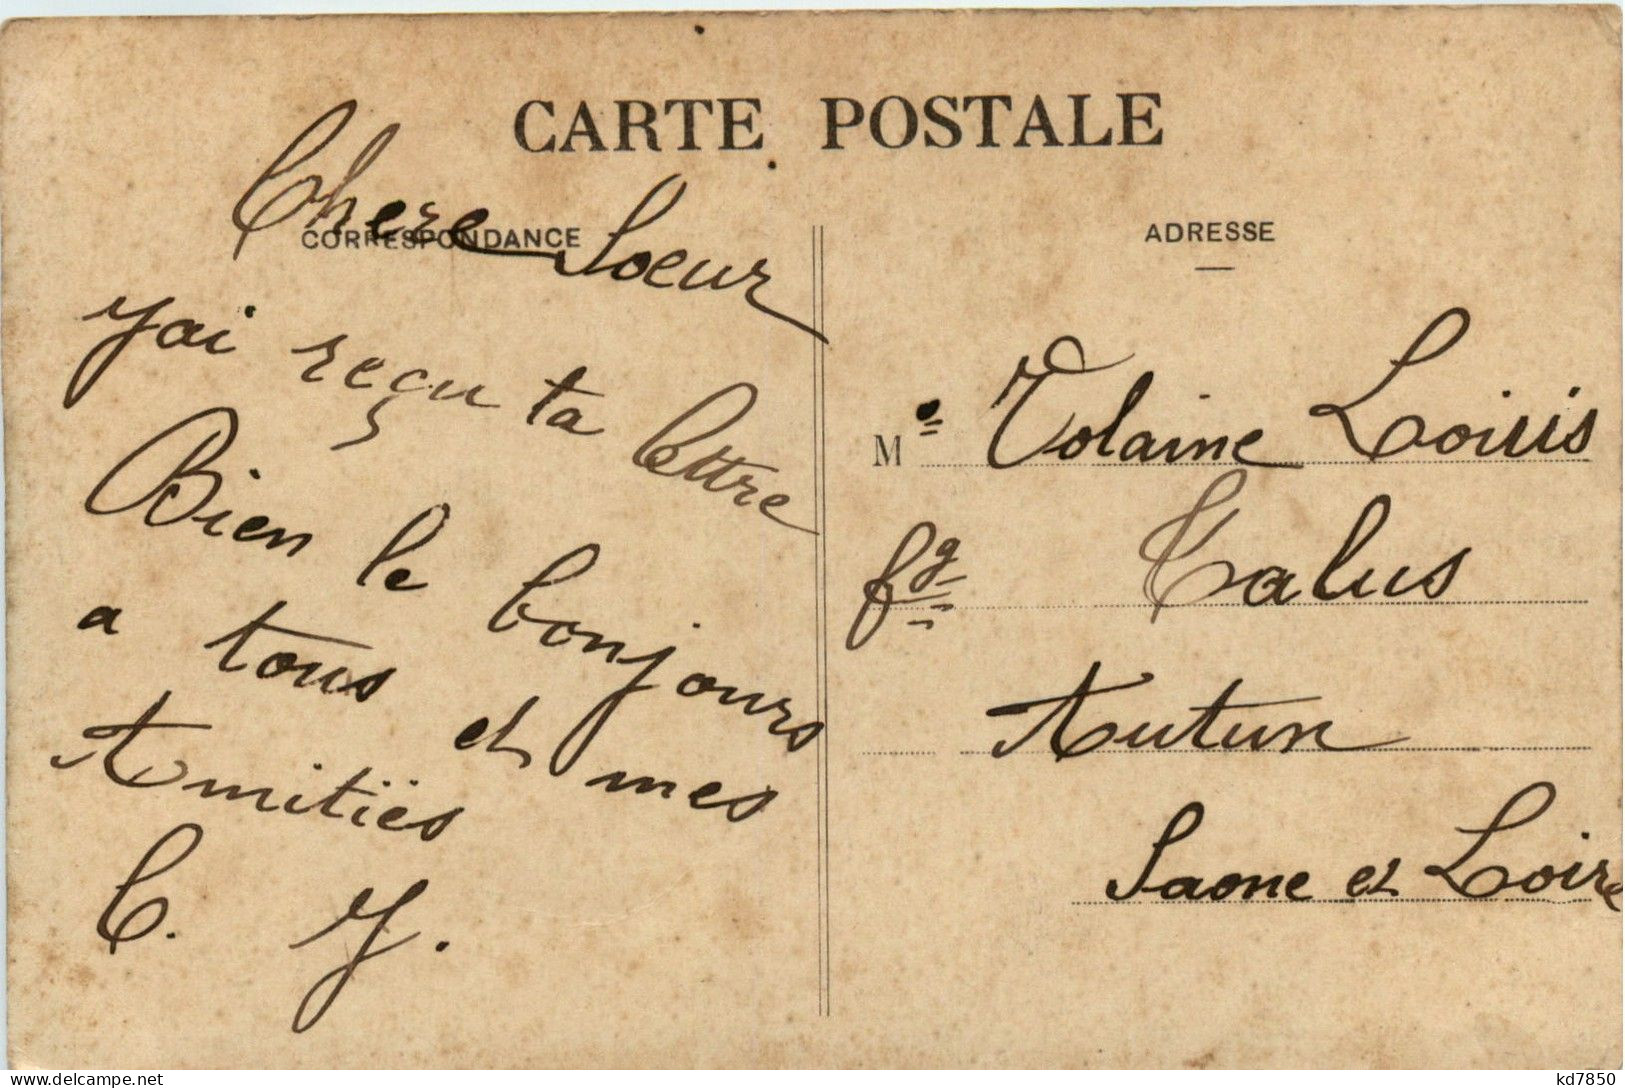 CARTE POSTALE
CORRESPONDANCE
Chere Soeur
J'ai reçu ta lettre
Bien le bonjours
a tous et mes
Amitiës
C. J.
ADRESSE
Me Volaine Louis
fg Talus
Autun
Saone et Loire
kd7850